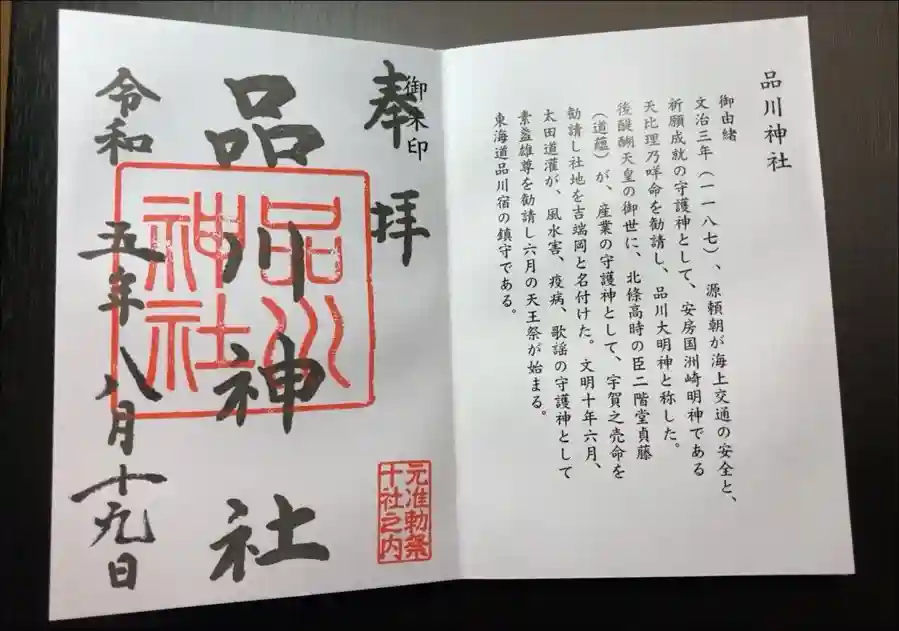 品川神社
御由緒
文治三年(一一八七)、源頼朝が海上交通の安全と、
祈願成就の守護神として、安房国洲崎明神である
天比理乃咩命を勧請し、品川大明神と称した。
後醍醐天皇の御世に、北條高時の臣二階堂貞藤
(道蘊)が、産業の守護神として、宇賀之売命を
勧請し社地を吉端岡と名付けた。文明十年六月、
太田道灌が、風水害、疫病、歌謡の守護神として
素盞雄尊を勧請し六月の天王祭が始まる。
東海道品川宿の鎮守である。
御朱印
奉拝
元准勅祭
十社之内
品川神社
品川
神社
令和五年八月十九日